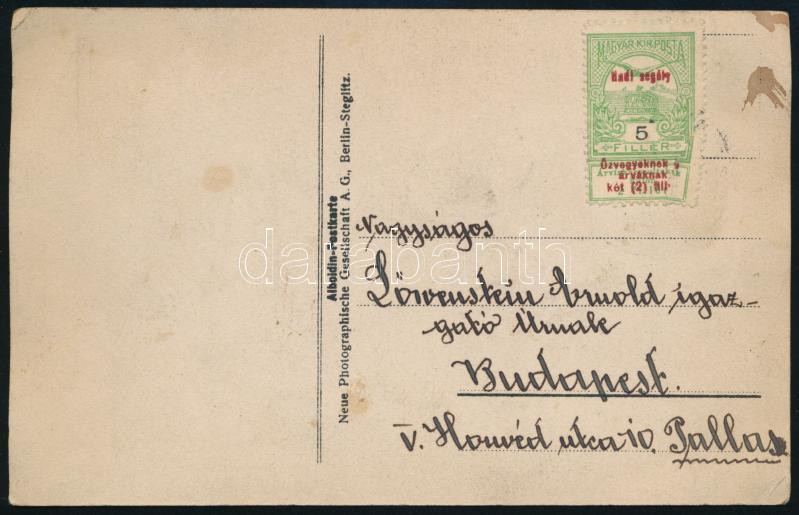 Alboidin-Postkarte
Neue Photographische Gesellschaft A. G., Berlin-Steglitz.
MAGYAR KIR. POSTA
Hadi segély
5
FILLÉR
Özvegyeknek és
árváknak
két (2) fill.
darabanth
Nagyságos
Löwenstein Arnold igaz-
gató Úrnak
Budapest.
V. Honvéd utca 10. Pallas